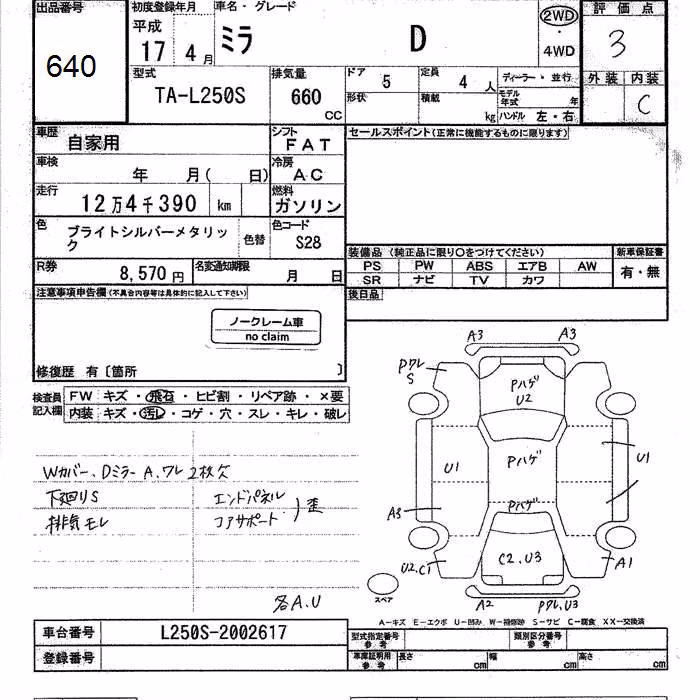 出品番号
640
初度登録年月
平成
17 4月
車名・グレード
ミラ D
2WD
・
4WD
評価点
3
外装 内装
C
型式
TA-L250S
排気量
660
CC
ドア
5
定員
4 人
形状
積載
kg
ディーラー・並行
モデル年式 年
ハンドル 左・右
車歴
自家用
シフト
FAT
車検
年 月( 日)
冷房
AC
走行
12万4千390 km
燃料
ガソリン
色
ブライトシルバーメタリック
色替
色コード
S28
R券
8,570円
名変通知期限
月 日
セールスポイント(正常に機能するものに限ります)
装備品 (純正品に限り○をつけてください)
PS PW ABS エアB AW
SR ナビ TV カワ
新車保証書
有・無
後日品
注意事項申告欄(不具合内容等は具体的に記入して下さい)
ノークレーム車
no claim
修復歴 有〔箇所 〕
検査員
記入欄
FW キズ・飛石・ヒビ割・リペア跡・×要
内装 キズ・汚レ・コゲ・穴・スレ・キレ・破レ
Wカバー、Dミラー A、ワレ 2枚欠
下廻りS
排気モレ
エンドパネル
コアサポート
歪
各A.U
A3 A3
Pワレ
S
Pハゲ
U2
U1
Pハゲ
U1
A3
Pハゲ
C2、U3
U2、C1
A1
スペア
A2
Pワレ、U3
A－キズ E－エクボ U－凹み W－補修跡 S－サビ C－腐食 XX－交換済
車台番号
L250S-2002617
登録番号
型式指定番号
参考
類別区分番号
参考
車庫証明用
参考
長さ cm
幅 cm
高さ cm